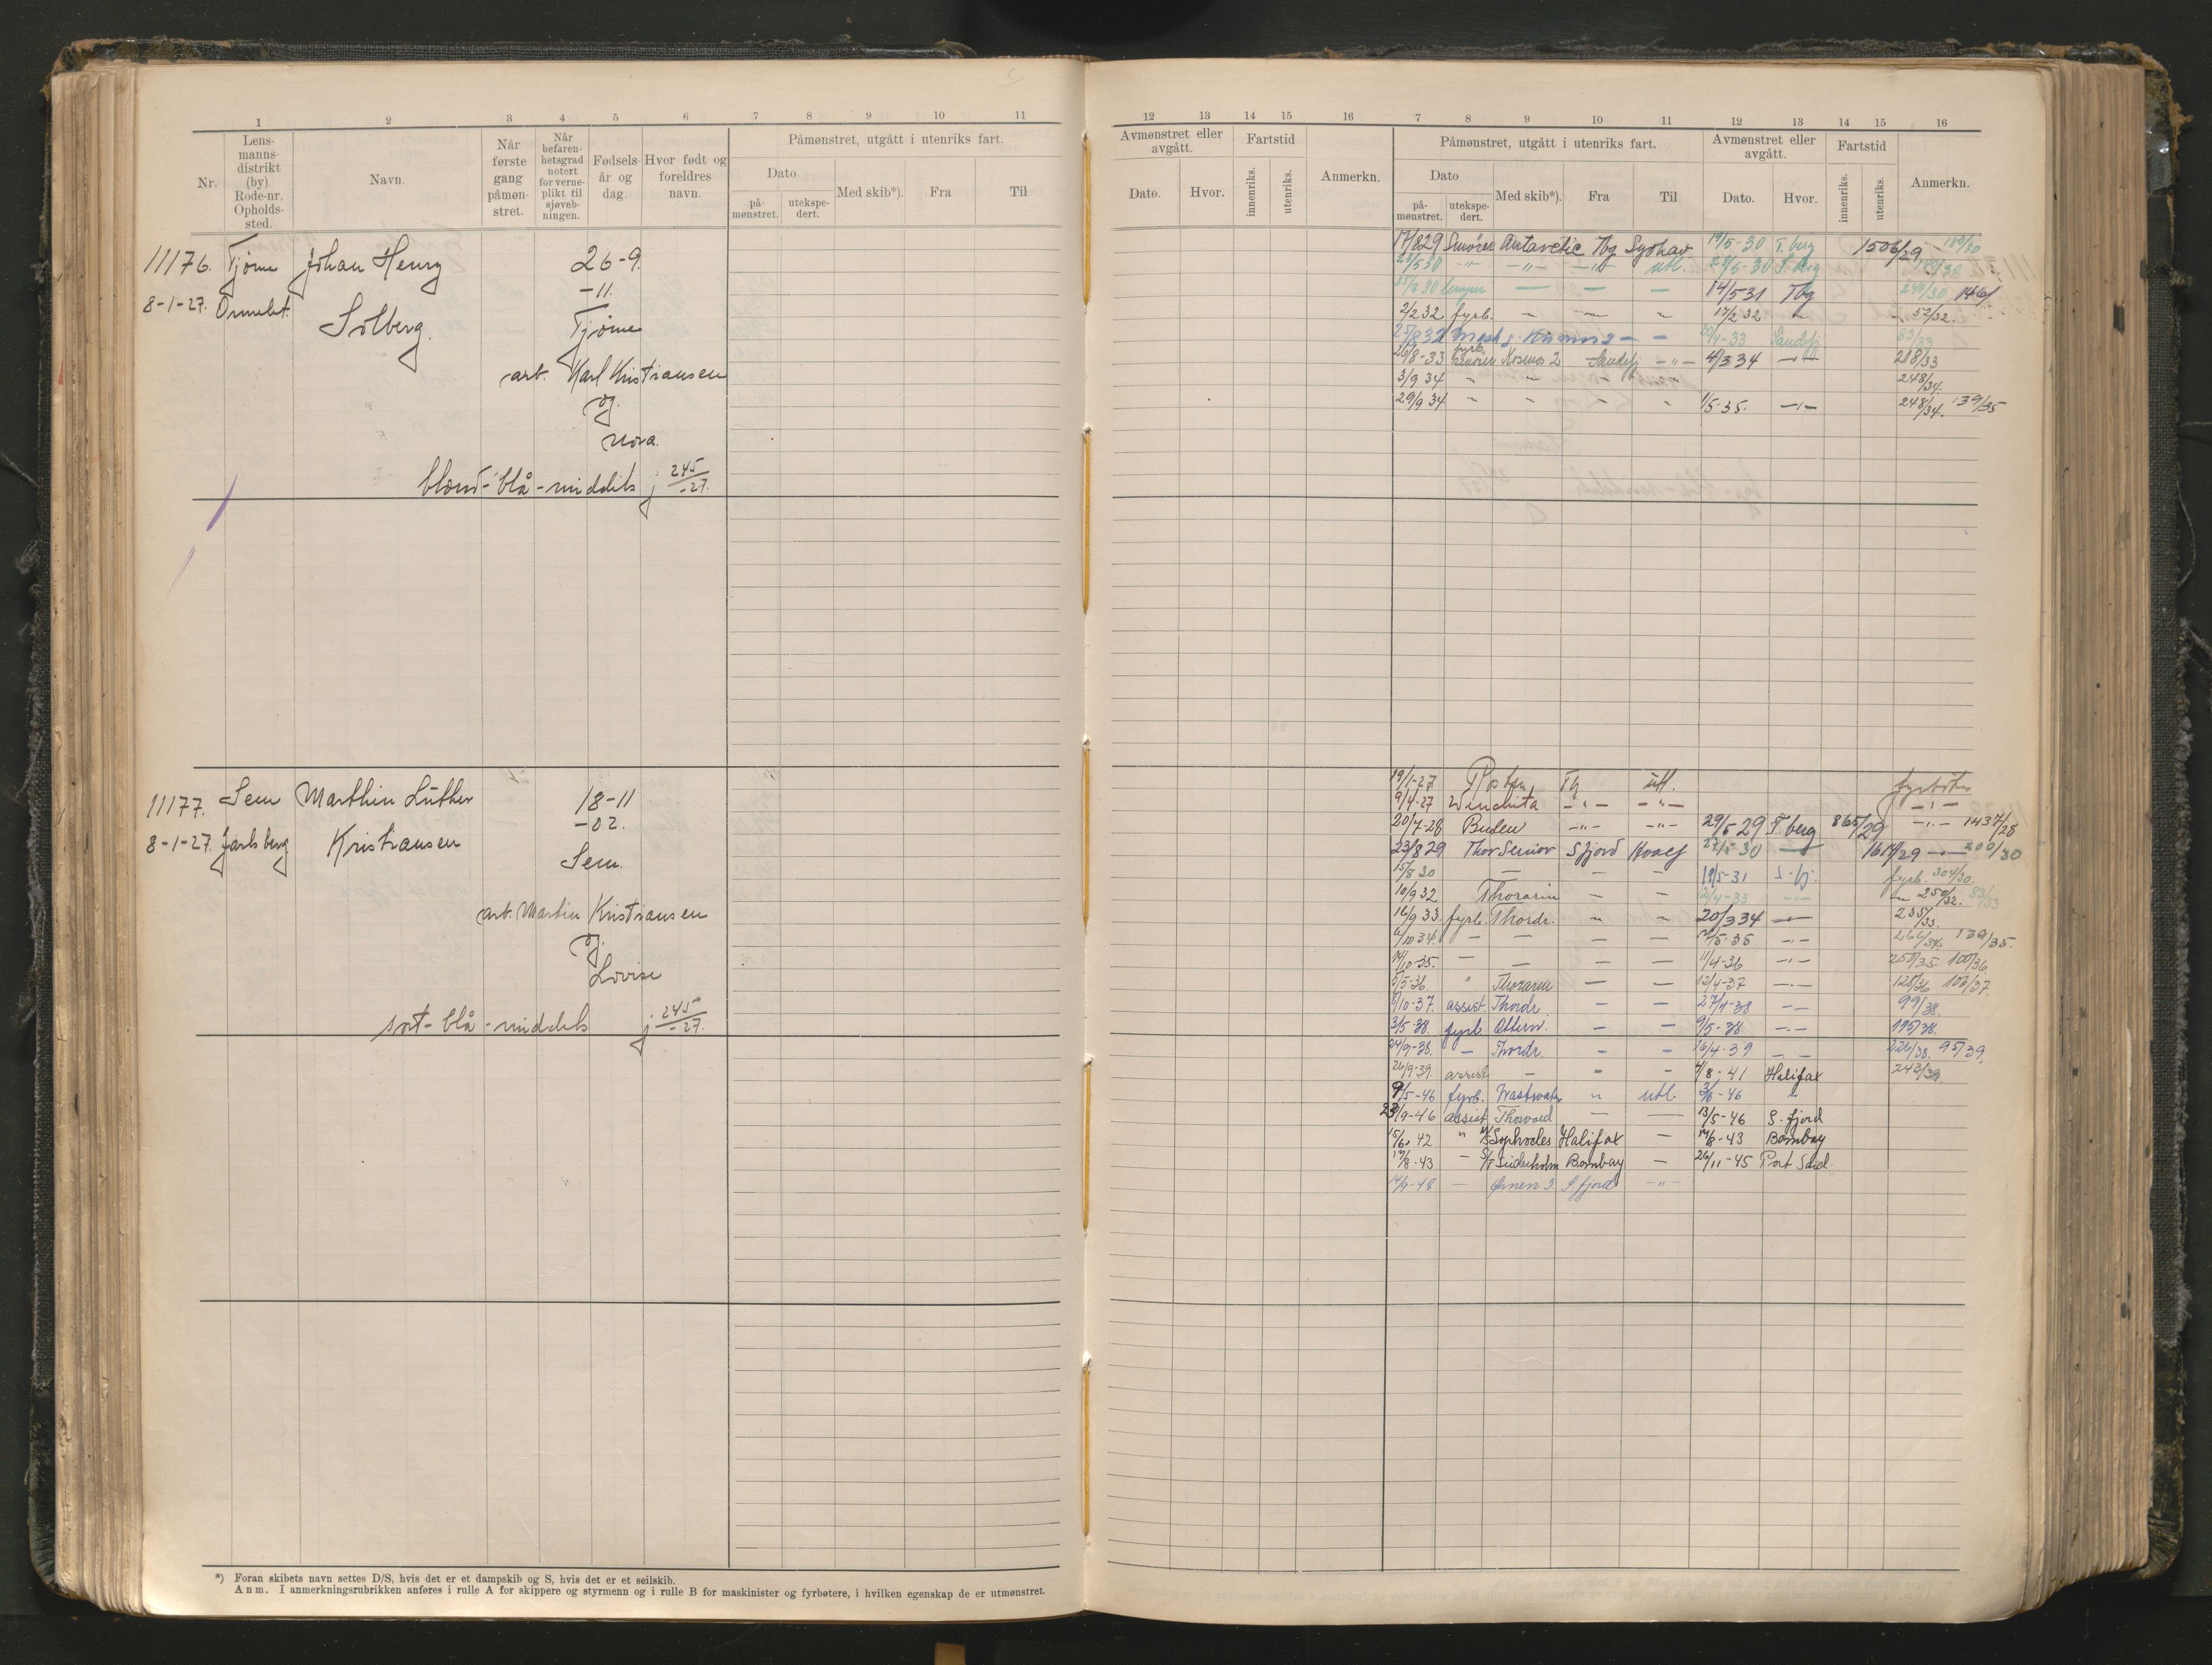 1 2 3 4 5 6 7 8 9 10 11
Nr. Lens-manns-distrikt (by). Rode-nr. Opholds-sted. Navn. Når første gang påmøn-stret. Når befaren-hetsgrad notert for verne-plikt til sjøveb-ningen. Fødsels-år og dag Hvor født og foreldres navn. Påmønstret, utgått i utenriks fart.
Dato på-mønstret. utekspe-dert. Med skib*). Fra Til
11176. Tjøme Johan Henry 26-9.
-11.
8-1-27. Ormelet. Solberg. Tjøme
arb. Karl Kristiansen
og
Nora.
blond-blå-middels j 245/-27.
11177. Sem Marthin Luther 18-11
-02.
8-1-27. Jarlsberg Kristiansen Sem.
arb. Martin Kristiansen
og
Lovise
sort-blå-middels j 245/-27.
*) Foran skibets navn settes D/S, hvis det er et dampskib og S, hvis det er et seilskib.
Anm. I anmerkningsrubrikken anføres i rulle A for skippere og styrmenn og i rulle B for maskinister og fyrbøtere, i hvilken egenskap de er utmønstret.
12 13 14 15 16 7 8 9 10 11 12 13 14 15 16
Avmønstret eller avgått. Fartstid Anmerkn. Påmønstret, utgått i utenriks fart. Avmønstret eller avgått. Fartstid Anmerkn.
Dato. Hvor. innenriks. utenriks. Dato på-mønstret. utekspe-dert. Med skib*). Fra Til Dato. Hvor. innenriks. utenriks.
17/8 29 Smører Antarctic Tbg Sydhav 19/5-30 T.berg 1506/29
23/5 30 -"- -"- -"- utl. 28/5-30
— — — 14/5 31 Tbg 240/30 146/
2/2 32 fyrb. " " " 17/2 32 " 52/32.
25/8 32 Kosmos 2 - - -33 Sandefj 83/33
26/8-33 fyrb. Smører Kosmos 2 Sandefj -"- 4/3 34 -"- 218/33
3/9 34 " " " " 248/34.
29/9 34 " " " " 1/5-35. -"- 248/34. 139/35
19/1-27 utl. fyrbøter
9/4-27 Winchita -"- -"- -"-
20/7-28 -"- -"- 29/5-29 T.berg 865/29 -"- 1437/28
23/8 29 Thor Senior Sfjord Hvalf 27/5-30 — 1614/29 -"- 200/30
15/8 30 — — — 19/5-31 S-fj. fyrb. 304/30.
10/9 32 Thorarin — — 21/4-33 -"- 250/32. 83/33
16/9 33 fyrb. Thordr. " " 20/3 34 -"- 235/33.
6/10 34. — — — — /5-35 -"- 266/34 139/35.
14/10-35. — — — — 11/4-36 -"- 257/35. 100/36.
5/5-36. " Thorarin — — 12/4-37 -"- 128/36 106/37.
/10-37. assist. Thordr. — — 27/4-38 -- 99/38.
3/5-38. fyrb. — — 9/5-38 -"- 195/38.
24/9-38. — Thordr. — — 16/4-39 -- 226/38. 95/39.
26/9-39. assist — — — /8-41 Halifax 243/39.
9/5-46 fyrb. " utl. 3/6-46 "
23/9-46 assist Thorvard — — 13/5-46 S.fjord
15/6-42 " M/S Sophocles Halifax — 17/8-43 Bombay
17/8-43 — S/T Suderholm Bombay — 26/11-45 Port Said.
14/9-48 — Ørnen 3 S.fjord -"-